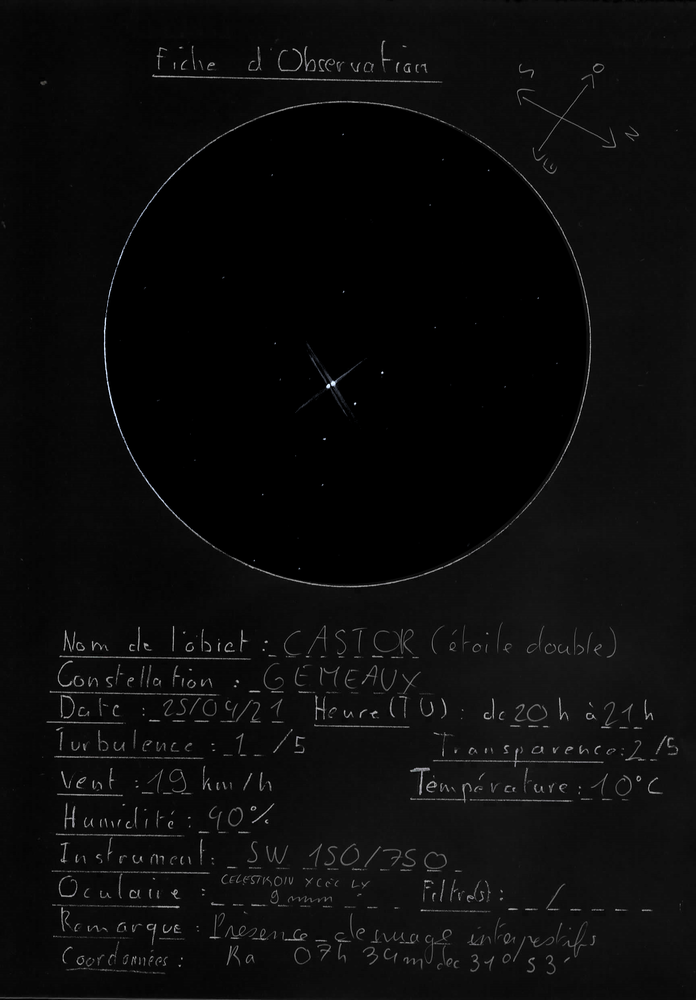 Fiche d'Observation
S O
N E
Nom de l'objet : CASTOR (étoile double)
Constellation : GEMEAUX
Date : 25/04/21 Heure (TU) : de 20h à 21h
Turbulence : 1 /5 Transparence : 2 /5
Vent : 19 km/h Température : 10°C
Humidité : 40%
Instrument : SW 150/750
Oculaire : CELESTRON XCEL LX 9mm Filtre(s) : /
Remarque : Présence de nuage intempestifs
Coordonnées : Ra 07h 34m dec 31° 53'